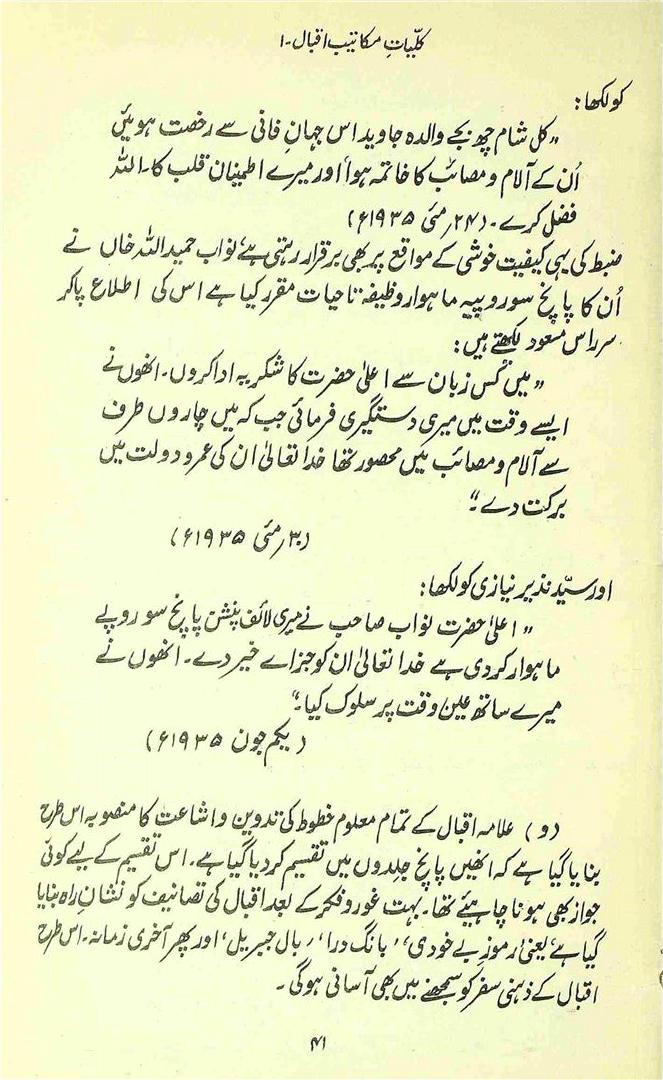 کلّیاتِ مکاتیب اقبال۔۱
کو لکھا:
"کل شام چھ بجے والدہ جاوید اس جہانِ فانی سے رخصت ہوئیں
اُن کے آلام و مصائب کا خاتمہ ہوا اور میرے اطمینان قلب کا۔ اللہ
فضل کرے۔ (۲۴؍ مئی ۱۹۳۵ء)
ضبط کی یہی کیفیت خوشی کے مواقع پر بھی برقرار رہتی ہے، نواب حمید اللہ خاں نے
اُن کا پانچ سو روپیہ ماہوار وظیفہ تاحیات مقرر کیا ہے اس کی اطلاع پا کر
سر راس مسعود لکھتے ہیں:
"میں کس زبان سے اعلیٰ حضرت کا شکریہ ادا کروں۔ انھوں نے
ایسے وقت میں میری دستگیری فرمائی جب کہ میں چاروں طرف
سے آلام و مصائب میں محصور تھا خدا تعالیٰ ان کی عمر و دولت میں
برکت دے۔"
(۳۰؍ مئی ۱۹۳۵ء)
اور سیّد نذیر نیازی کو لکھا:
"اعلیٰ حضرت نواب صاحب نے میری لائف پنشن پانچ سو روپے
ماہوار کر دی ہے خدا تعالیٰ ان کو جزاے خیر دے۔ انھوں نے
میرے ساتھ عین وقت پر سلوک کیا۔"
(یکم جون ۱۹۳۵ء)
(و) علامہ اقبال کے تمام معلوم خطوط کی تدوین و اشاعت کا منصوبہ اس طرح
بنایا گیا ہے کہ انھیں پانچ جلدوں میں تقسیم کر دیا گیا ہے۔ اس تقسیم کے لیے کوئی
جواز بھی ہونا چاہیئے تھا۔ بہت غور و فکر کے بعد اقبال کی تصانیف کو نشانِ راہ بنایا
گیا ہے، یعنی 'رموزِ بے خودی'، 'بانگ درا'، 'بال جبریل' اور پھر آخری زمانہ۔ اس طرح
اقبال کے ذہنی سفر کو سمجھنے میں بھی آسانی ہوگی۔
۴۱